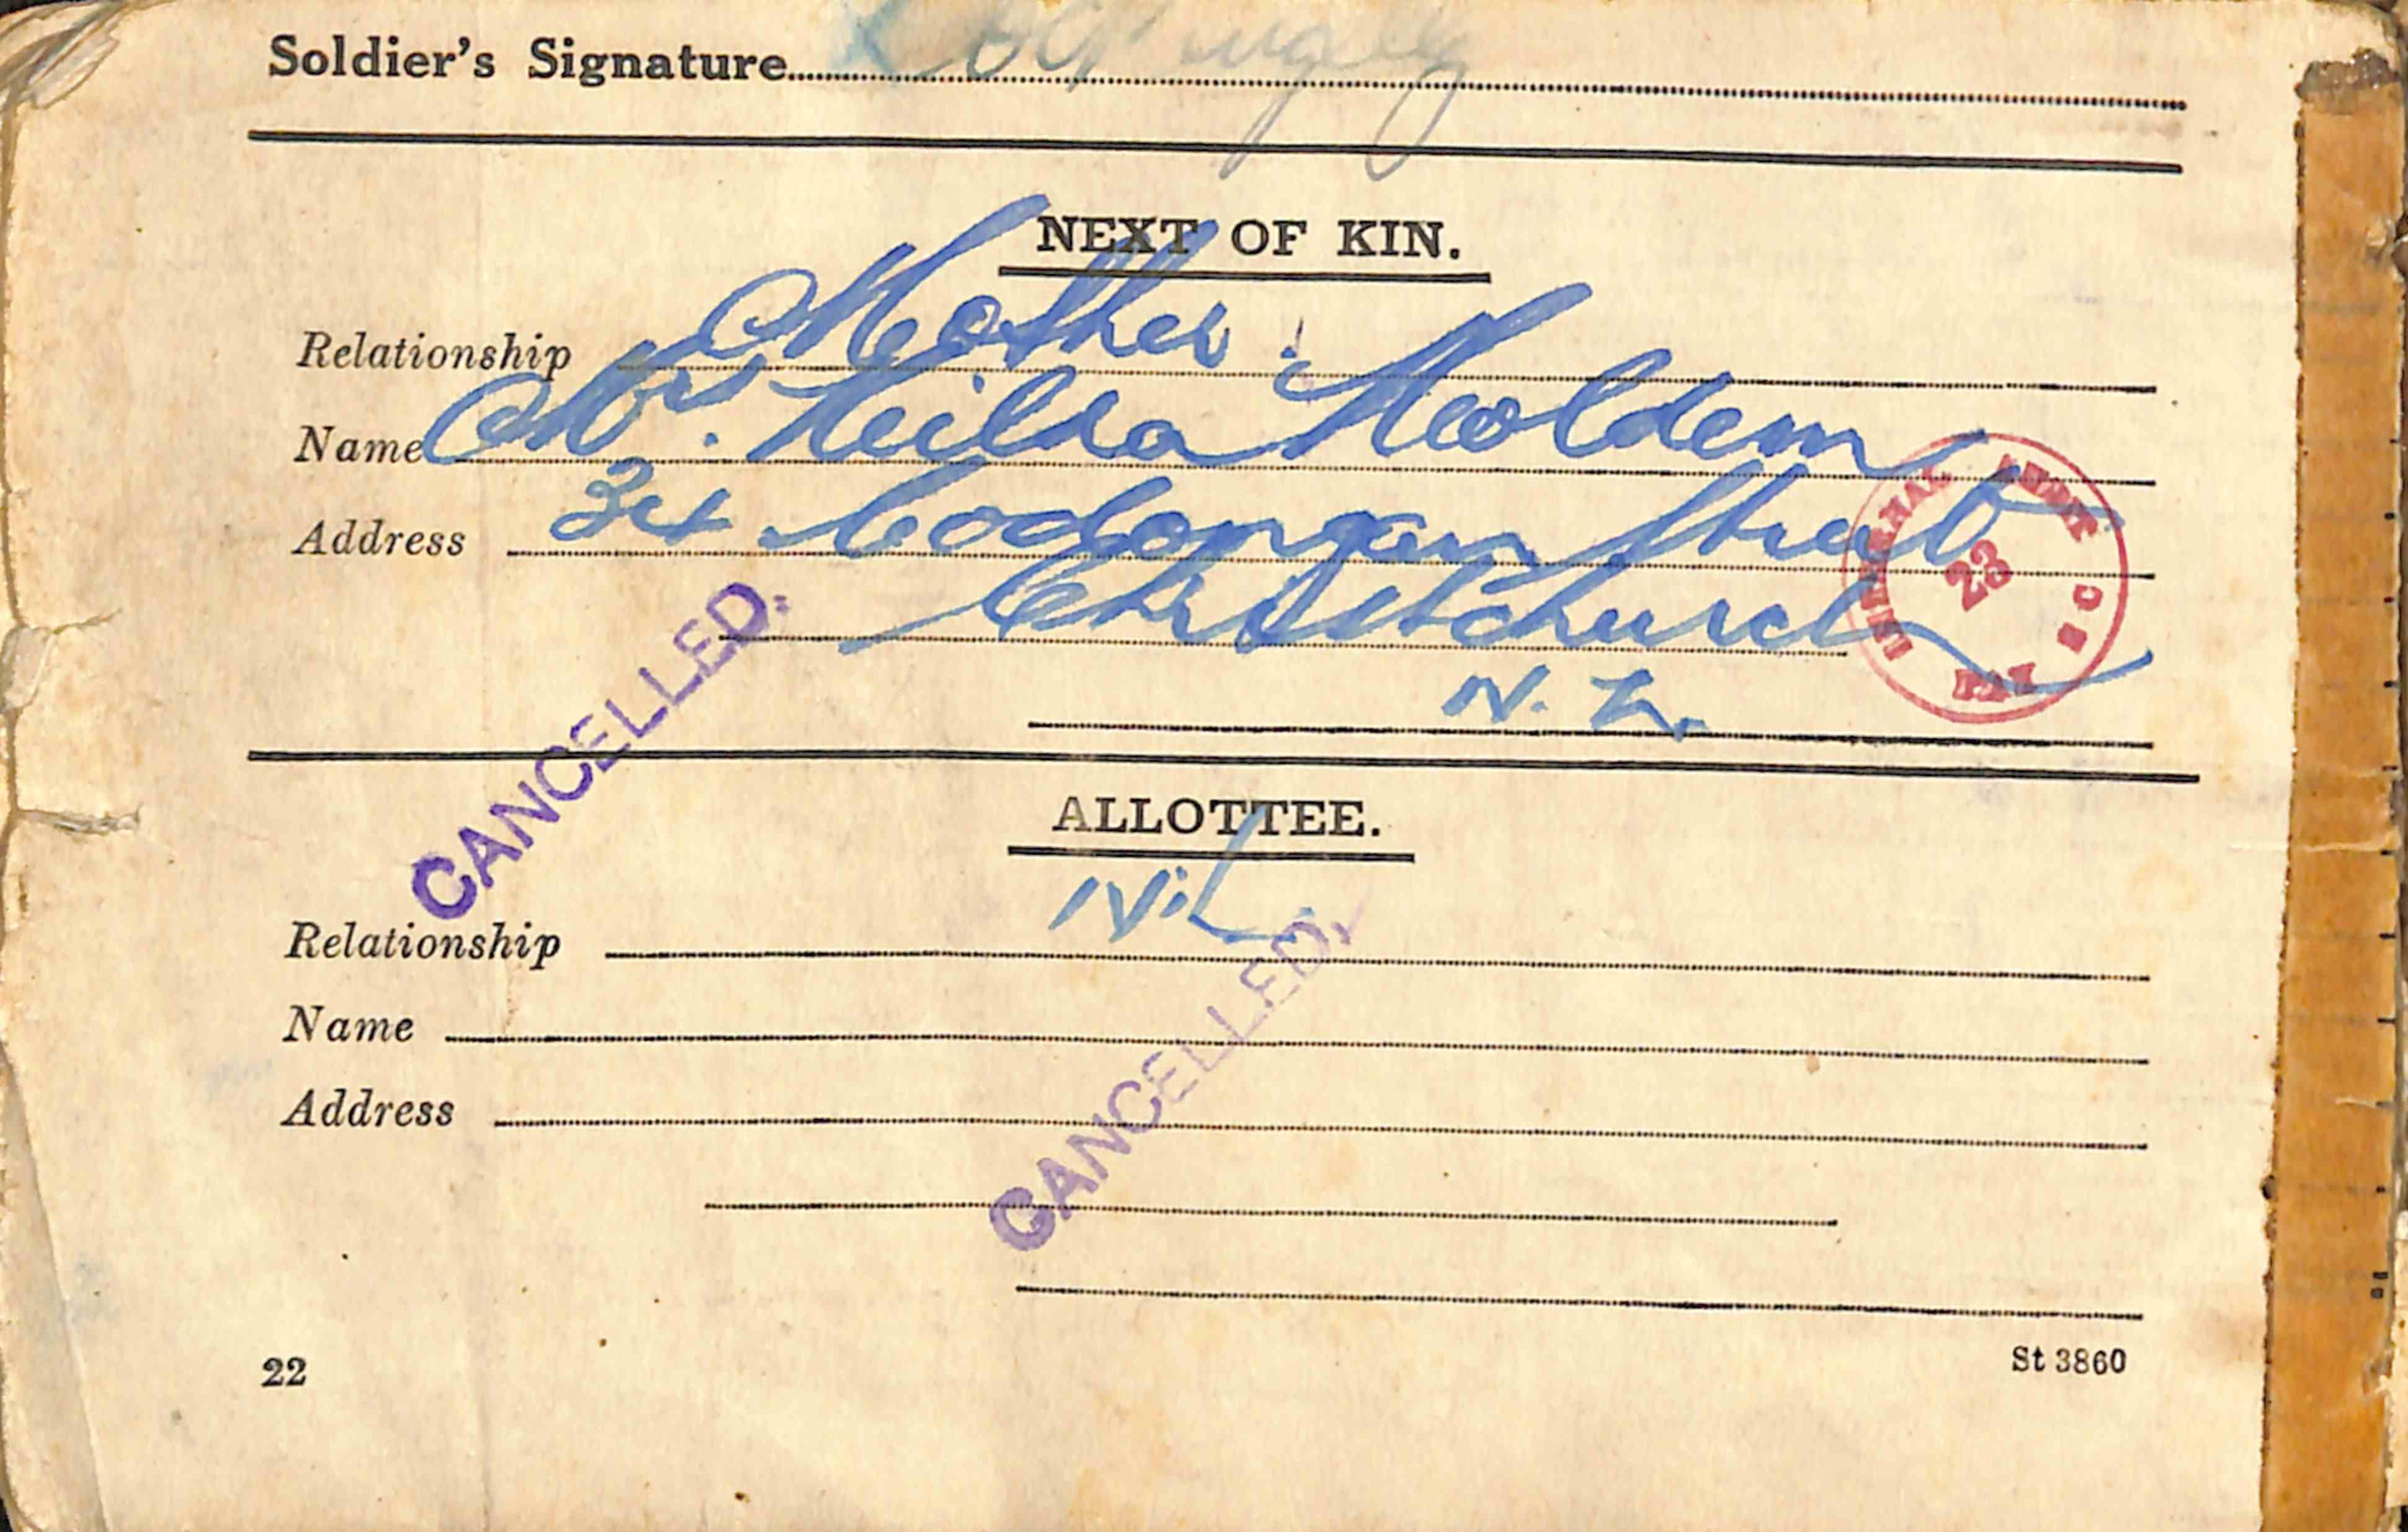 Soldier's Signature
NEXT OF KIN.
Relationship Mother.
Name Mrs. Heilda Holdem
Address 34 Cadogan Street
Christchurch
N. Z.
23
PAY
CANCELLED.
ALLOTTEE.
Nil
Relationship
Name
Address
CANCELLED.
22
St 3860